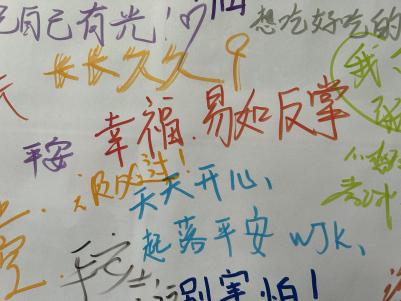 自己有光！
想吃好吃的
长长久久
幸福.易如反掌
平安
天天开心、
起落平安 WJK、
平安
别害怕！